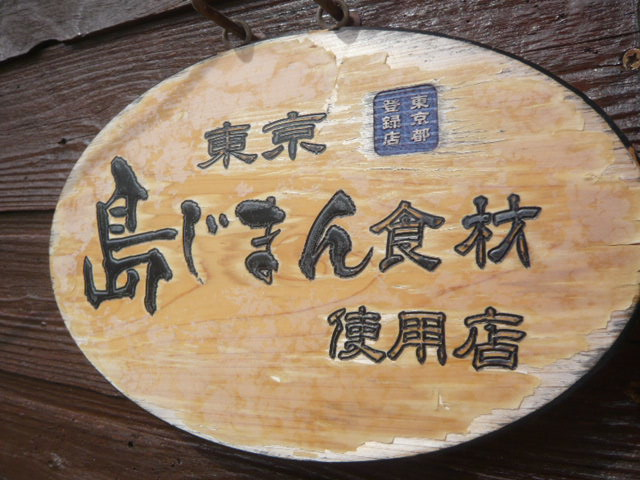 東京
東京都
登録店
島じまん食材
使用店